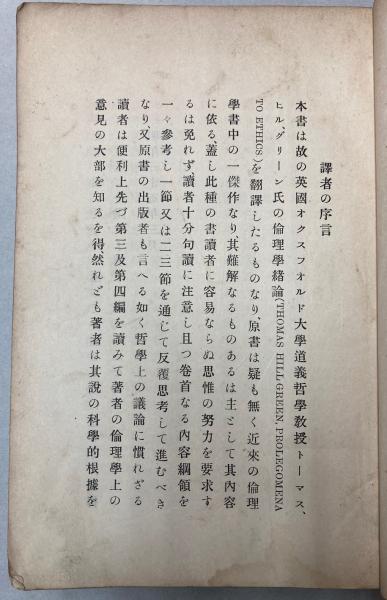 譯者の序言
本書は故の英國オクスフオルド大學道義哲學敎授トーマス、
ヒル、グリーン氏の倫理學緖論(THOMAS HILL GREEN, PROLEGOMENA
TO ETHICS)を翻譯したるものなり、原書は疑も無く近來の倫理
學書中の一傑作なり、其難解なるものあるは主として其內容
に依る、蓋し此種の書讀者に容易ならぬ思惟の努力を要求す
るは免れず、讀者十分句讀に注意し且つ卷首なる內容綱領を
一々參考し一節又は二三節を通じて反覆思考して進むべき
なり、又原書の出版者も言へる如く哲學上の議論に慣れざる
讀者は便利上先づ第三及第四編を讀みて著者の倫理學上の
意見の大部を知るを得、然れども著者は其說の科學的根據を